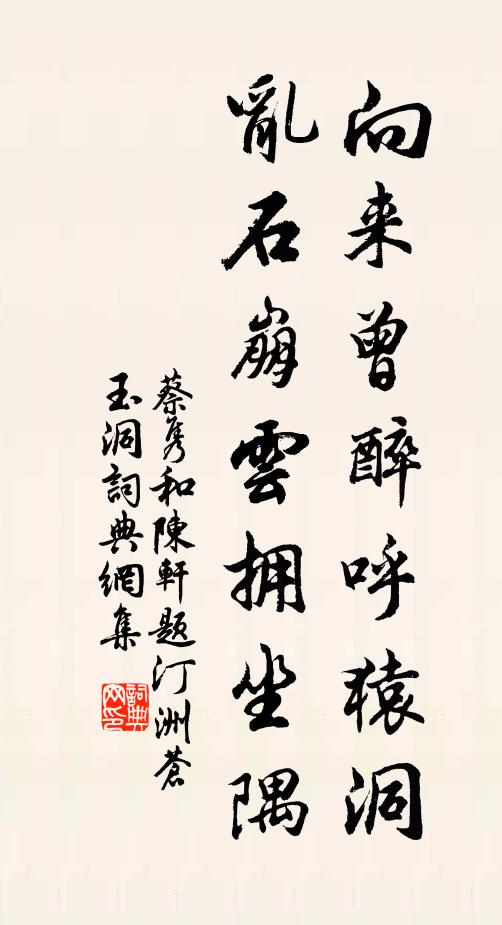 向来曾醉呼猿洞
亂石崩雲拥坐隅
蔡隽和陳軒題汀洲蒼
玉洞詞典網集
詞典
网印